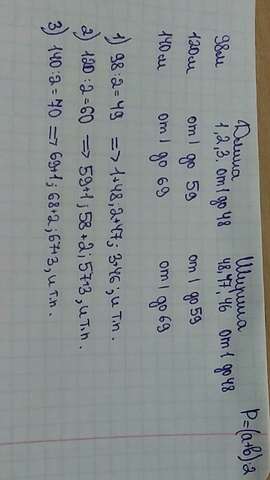 Длина Ширина P=(a+b)2
98м 1,2,3, от 1 до 48 48,47,46 от 1 до 48
120м от 1 до 59 от 1 до 59
140м от 1 до 69 от 1 до 69
1) 98:2=49 => 1+48; 2+47; 3+46; и т.п.
2) 120:2=60 => 59+1; 58+2; 57+3, и т.п.
3) 140:2=70 => 69+1; 68+2; 67+3, и т.п.